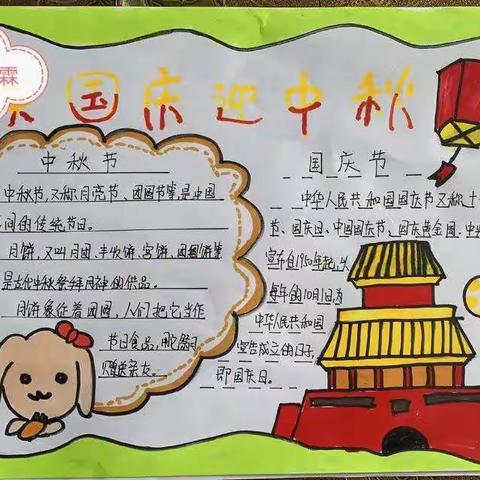 霖
国庆迎中秋
中秋节
中秋节,又称月亮节、团圆节等,是中国
间的传统节日。
月饼,又叫月团、丰收饼、宫饼、团圆饼等
是古代中秋祭拜月神的供品。
月饼象征着团圆,人们把它当作
节日食品,
赠送亲友。
国庆节
中华人民共和国国庆节又称十
节、国庆日、中国国庆节、国庆黄金周。中央
宣布自1950年起,以
每年的10月1日,为
中华人民共和国
宣告成立的日子,
即国庆日。